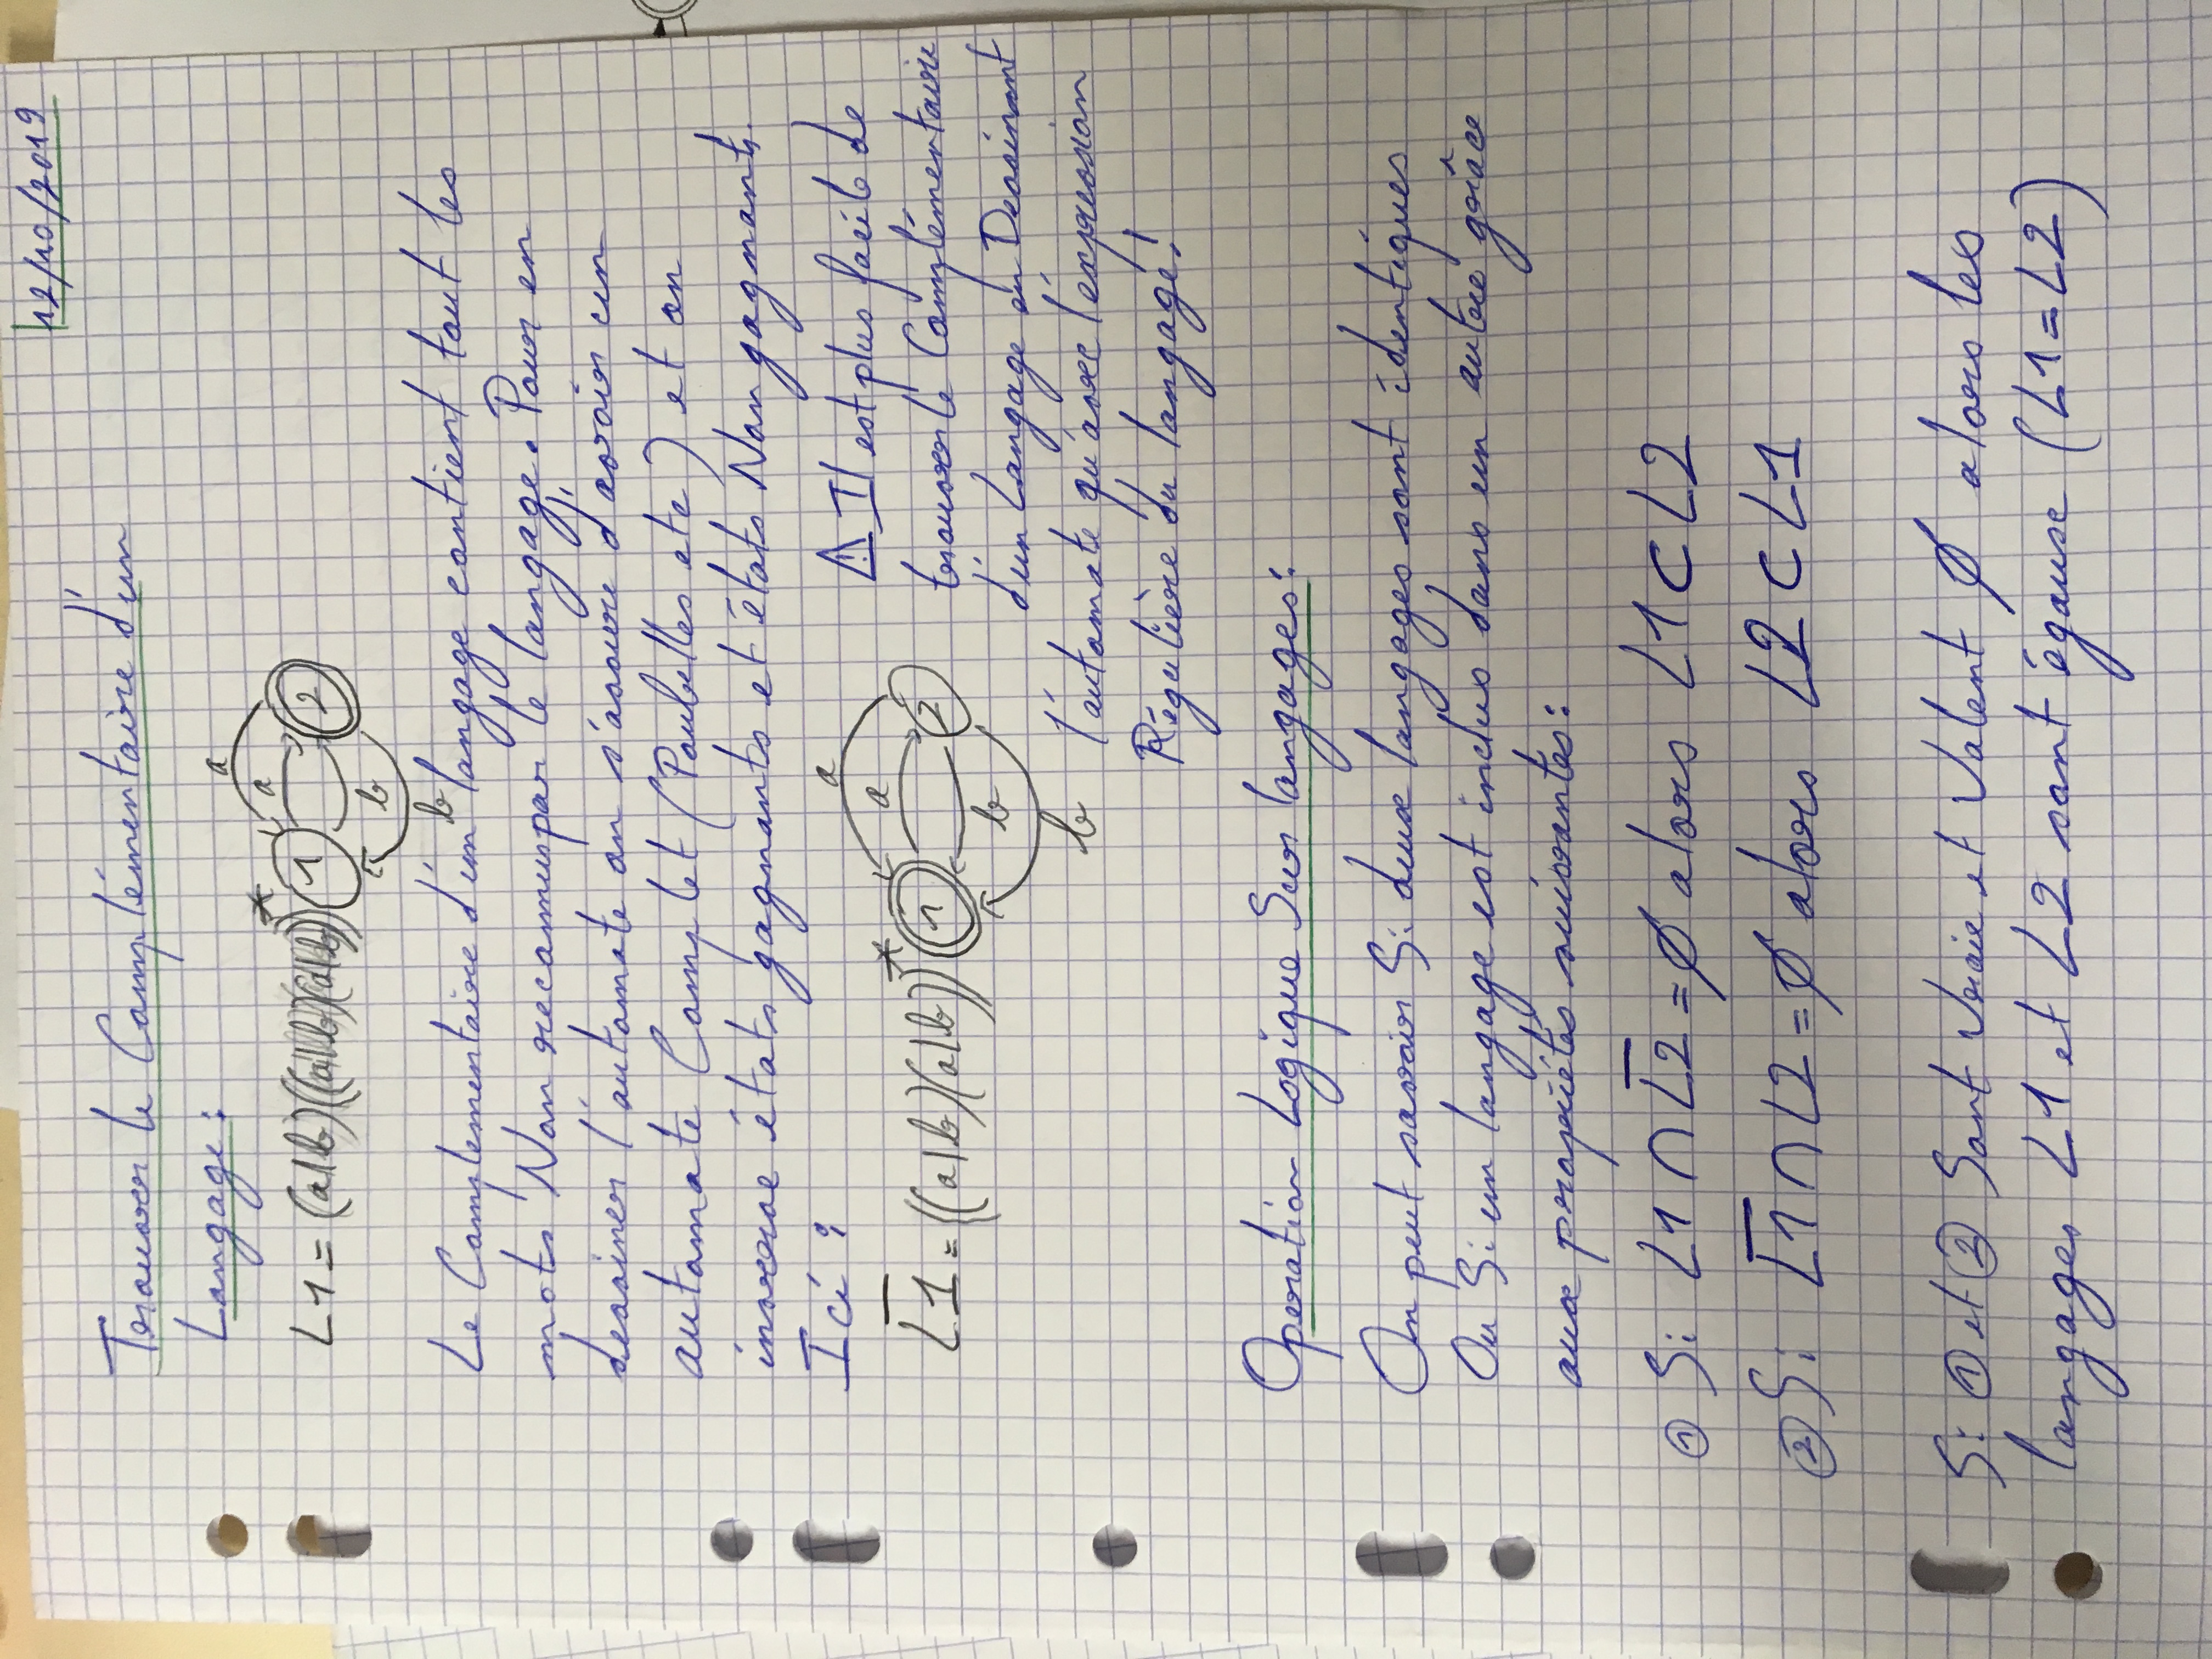 12/10/2019
Trouver le Complémentaire d'un
Langage :
L1 = (a|b)((a|b)(a|b))*
a
a
1
2
b
b
Le Complementaire d'un langage contient tout les
mots Non reconnus par le langage. Pour en
dessiner l'automate on s'assure d'avoir un
automate Complet (Poubelles etc) et on
inverse états gagnants et états Non gagnants.
Ici :
L̅1̅ = ((a|b)(a|b))*
a
a
1
2
b
b
⚠ Il est plus facile de
trouver le Complémentaire
d'un Langage en Dessinant
l'automate qu'avec l'expression
Régulière du langage !
Operation Logique Sur langages :
On peut savoir Si deux langages sont identiques
Ou Si un langage est inclus dans un autre grâce
aux propriétés suivantes :
① Si L1 ∩ L̅2̅ = ∅ alors L1 ⊂ L2
② Si L̅1̅ ∩ L2 = ∅ alors L2 ⊂ L1
Si ① et ② Sont Vraie et Valent ∅ alors les
langages L1 et L2 sont égaux (L1 = L2)